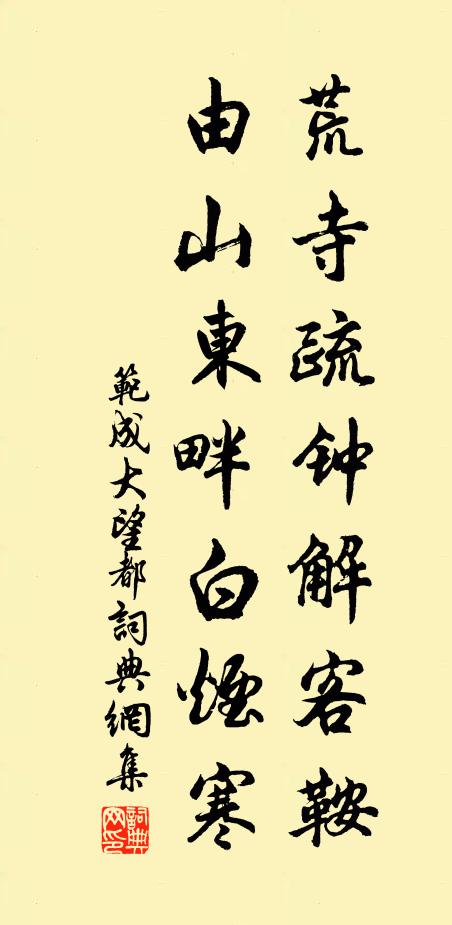 荒寺疏钟解客鞍
由山東畔白煙寒
範成大望都詞典網集
詞典
网印